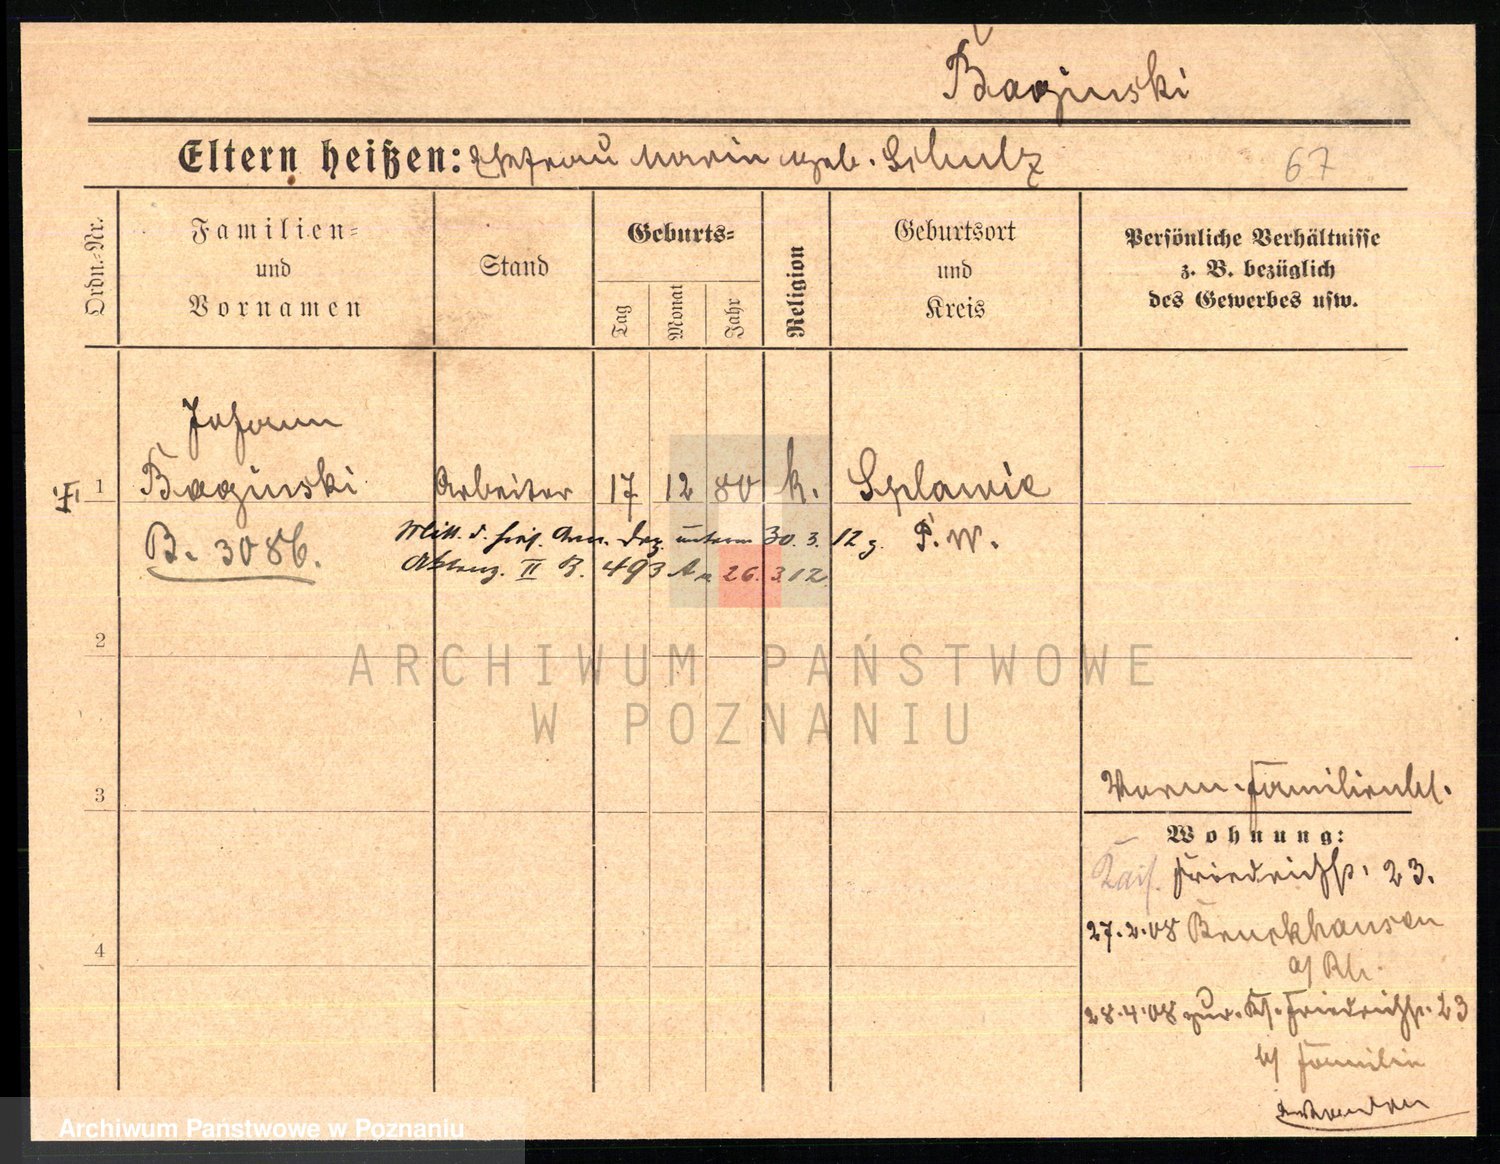 Baginski
Eltern heißen: Ehefrau Marie geb. Schulz
67
Ordn.-Nr.
Familien-
und
Vornamen
Stand
Geburts-
Tag
Monat
Jahr
Religion
Geburtsort
und
Kreis
Persönliche Verhältnisse
z. B. bezüglich
des Gewerbes usw.
Johann
1 Baginski Arbeiter 17 12 80 k. Splawie
B. 3086.
P. W.
Mitt. d. unterm 30. 3. 12 g.
II B. 493 26. 3. 12
2
ARCHIWUM PAŃSTWOWE
W POZNANIU
3
Familienbl.
Wohnung:
Kais. Friedrichstr. 23.
27.2.08 Bruckhausen
a/Rh.
4
28.4.08 zur. Ks. Friedrichstr. 23
b/ Familie
Archiwum Państwowe w Poznaniu